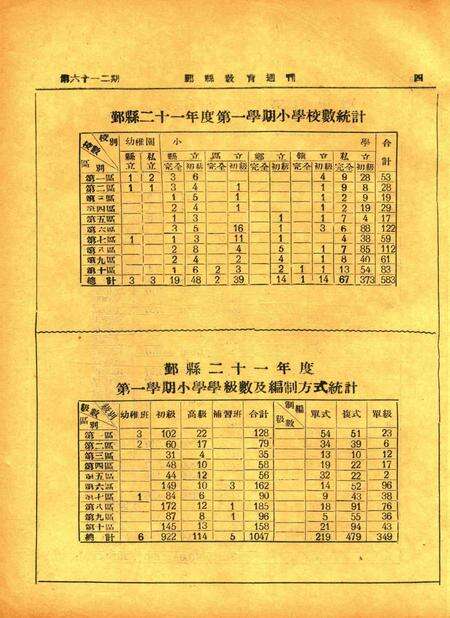 第六十一二期 鄞縣敎育週刊 四
鄞縣二十一年度第一學期小學校數統計
校數 級別 區別 幼稚園 小 學 合計
縣立 私立 縣立 區立 鄉立 鎮立 私立
完全 初級 完全 初級 完全 初級 完全 初級 完全 初級
第一區 1 2 3 6 4 9 28 53
第二區 1 1 3 4 1 1 9 8 28
第三區 1 5 1 1 2 9 19
第四區 2 4 1 1 2 19 29
第五區 1 3 1 1 7 4 17
第六區 3 5 16 1 3 6 88 122
第七區 1 1 3 11 1 4 38 59
第八區 2 8 4 5 1 7 85 112
第九區 2 4 2 4 1 8 40 61
第十區 1 6 2 3 2 1 1 13 54 83
總計 3 3 19 48 2 39 14 1 14 67 373 583
鄞縣二十一年度
第一學期小學學級數及編制方式統計
級數 級別 區別 幼稚班 初級 高級 補習班 合計 編制 級數 單式 複式 單級
第一區 3 102 22 128 54 51 23
第二區 2 60 17 79 34 39 6
第三區 31 4 35 13 10 12
第四區 48 10 58 19 22 17
第五區 44 12 56 32 22 2
第六區 149 10 3 162 14 52 96
第七區 1 84 6 90 9 43 38
第八區 172 12 1 185 18 91 76
第九區 87 8 1 96 5 55 36
第十區 145 13 158 21 94 43
總計 6 922 114 5 1047 219 479 349